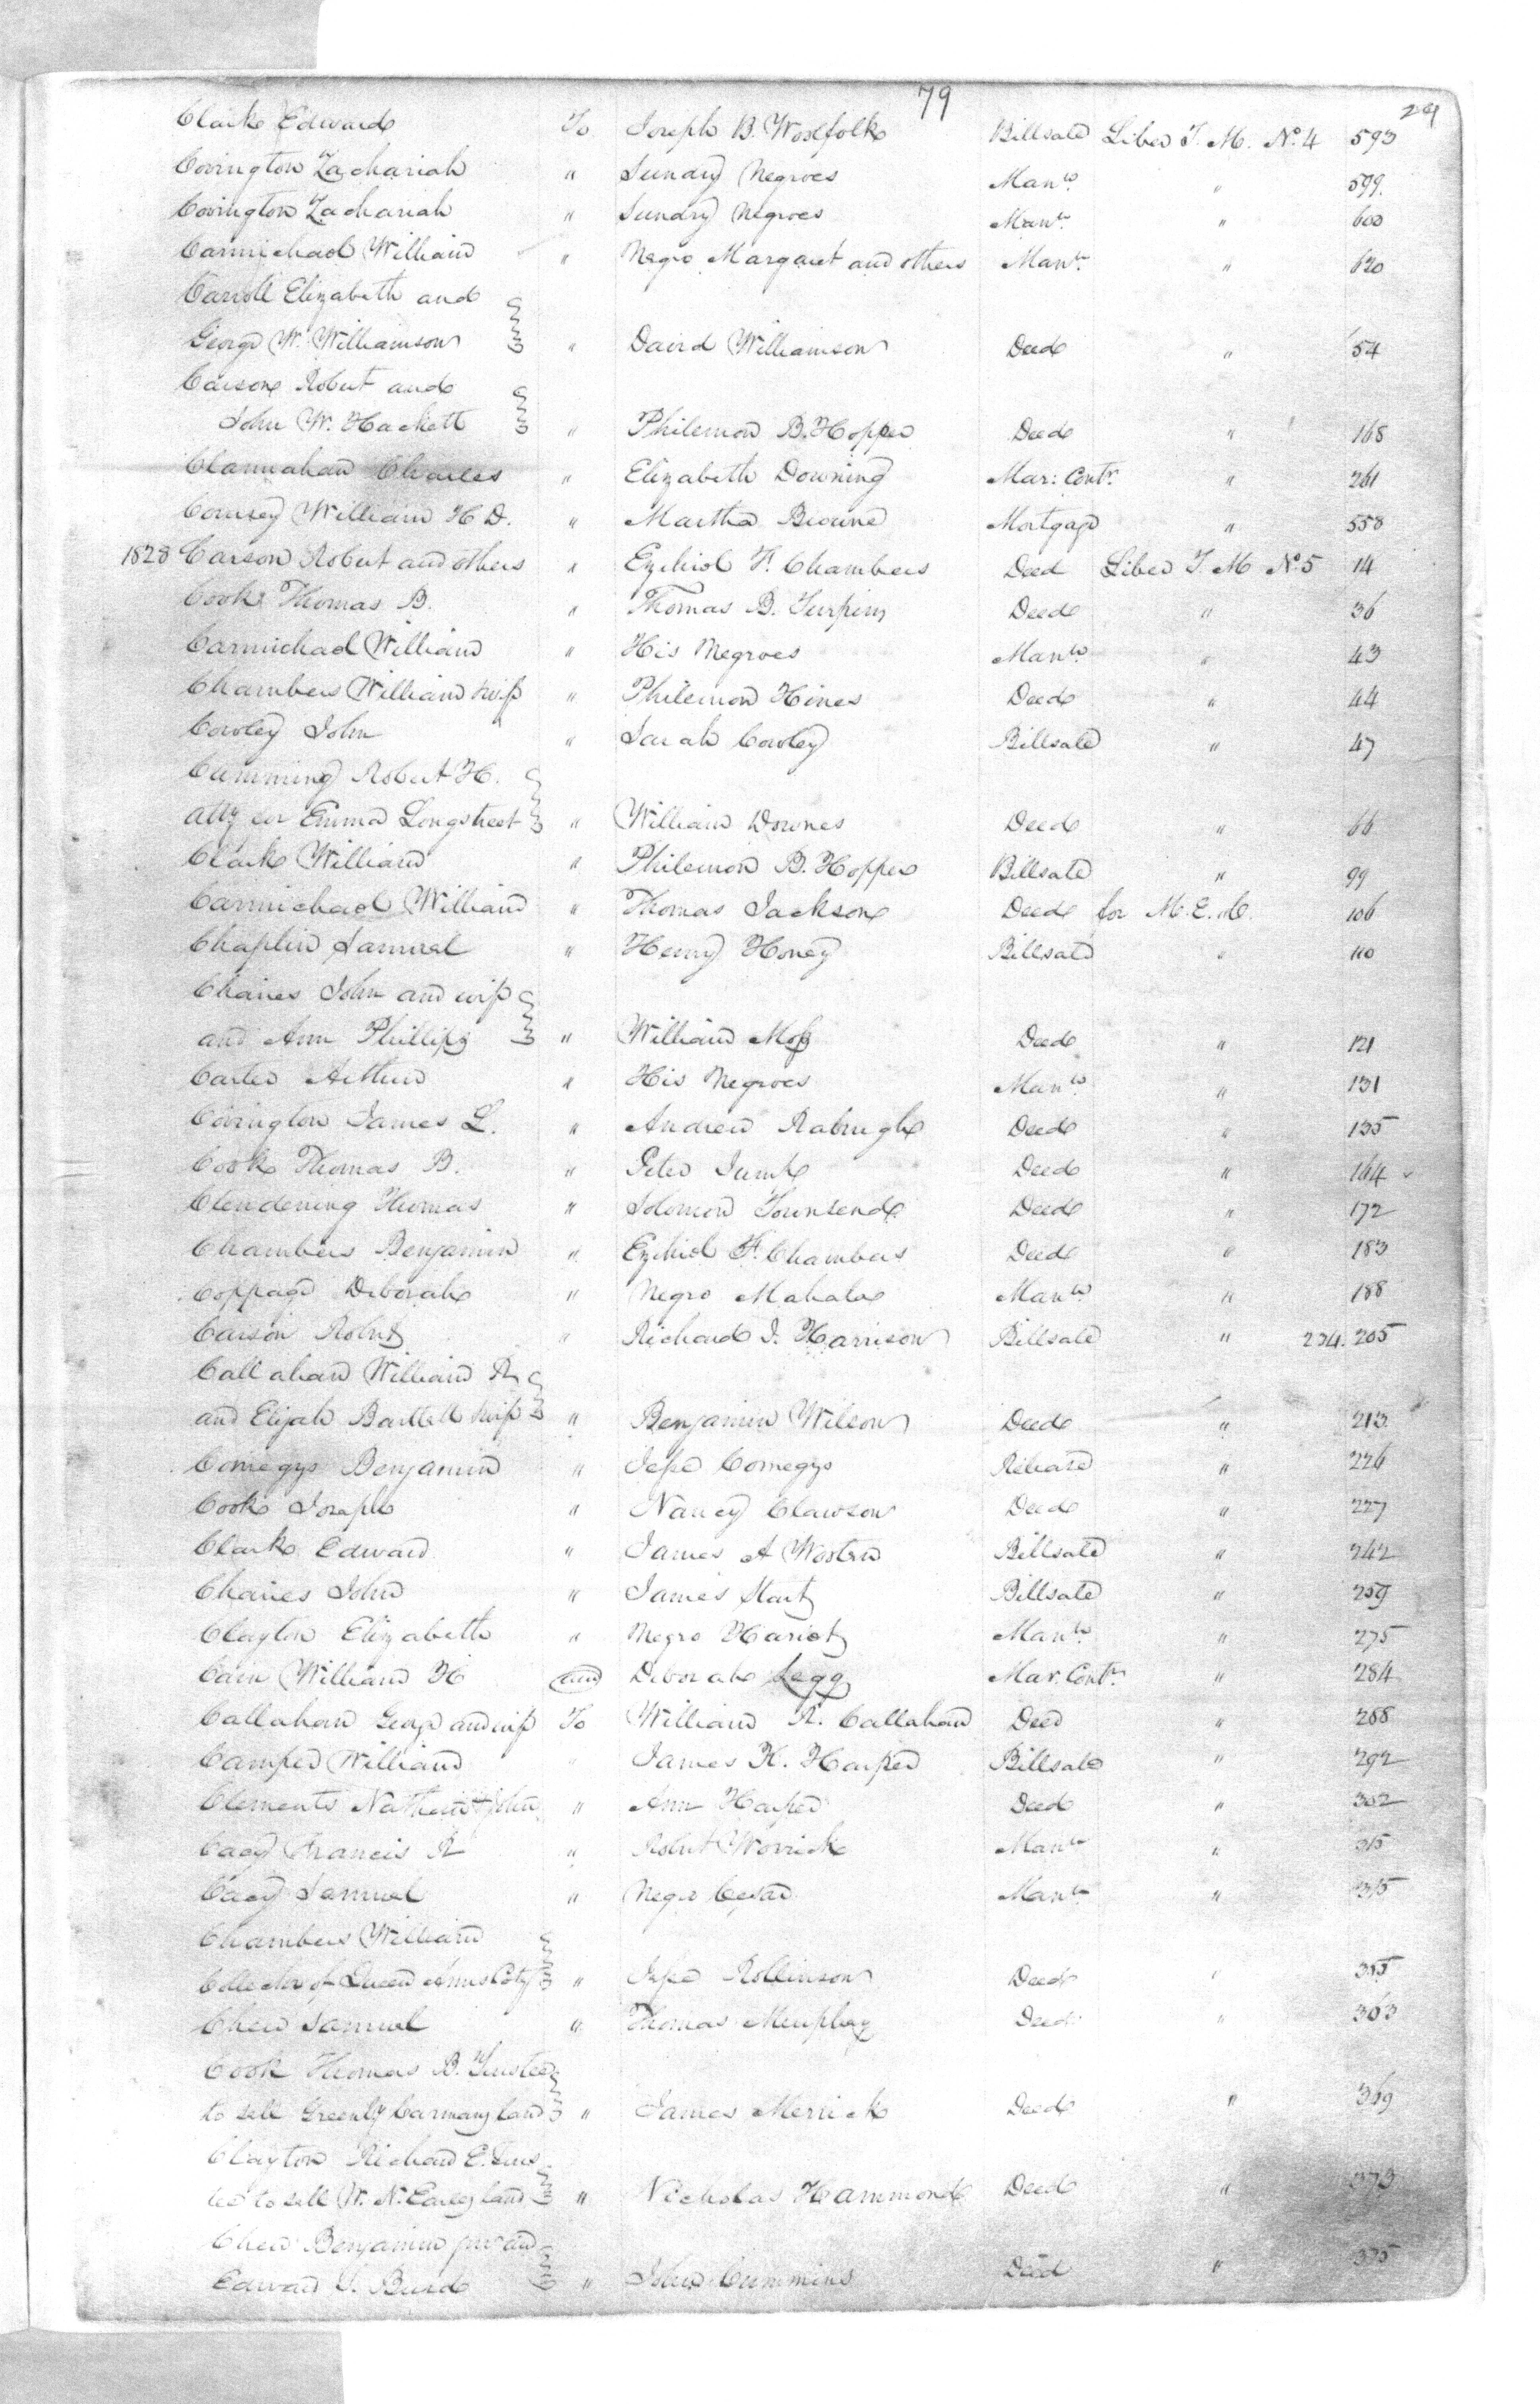 79
Clark Edward To Joseph B. Woolfolk Billsale Liber T. M. No. 4 593
Covington Zachariah " Sundry Negroes Mann. " 599.
Covington Zachariah " Sundry Negroes Mann. " 600
Carmichael William " Negro Margaret and others Mann. " 620
Carroll Elizabeth and
George W. Williamson " David Williamson Deed " 54
Carson Robert and
John W. Hackett " Philemon B. Hopper Deed " 168
Clannahan Charles " Elizabeth Downing Mar: Contr. " 261
Coursey William H. D. " Martha Browne Mortgage " 558
1828 Carson Robert and others " Ezekiel F. Chambers Deed Liber T. M No. 5 14
Cook Thomas B. " Thomas B. Turpin Deed " 36
Carmichael William " His Negroes Mann. " 43
Chambers William & wife " Philemon Hines Deed " 44
Cowley John " Sarah Cowley Billsale " 47
Cumming Robert H.
atty for Emma Longstreet " William Downes Deed " 66
Clark William " Philemon B. Hopper Billsale " 99
Carmichael William " Thomas Jackson Deed for M. E. Ch. 106
Chaplin Samuel " Henry Honey Billsale " 110
Chaires John and wife
and Ann Phillips " William Moss Deed " 121
Carter Arthur " His Negroes Mann. " 131
Covington James L. " Andrew Deed " 135
Cook Thomas B. " Peter Deed " 164
Clendening Thomas " Solomon Townsend Deed " 172
Chambers Benjamin " Ezekiel F. Chambers Deed " 183
Coppage Deborah " Negro Mahala Mann. " 188
Carson Robert " Richard I. Harrison Billsale " 204. 205
Callahan William R
and Elijah Bartlett & wife " Benjamin Wilson Deed " 213
Comegys Benjamin " Jesse Comegys Release " 226
Cook Joseph " Nancy Clawson Deed " 227
Clark Edward " James A Wooters Billsale " 242
Chaires John " James Start Billsale " 259
Clayton Elizabeth " Negro Hariot Mann. " 275
Cain William H and Deborah Legg Mar. Contr. " 284
Callahan George and wife To William R. Callahan Deed " 288
Camper William " James K. Harper Billsale " 292
Clements Nathan & John " Ann Harper Deed " 302
Cacy Francis R " Robert Worrick Mann. " 315
Cacy Samuel " Negro Cesar Mann. " 315
Chambers William
Collector of Queen Anns Coty " Jesse Rollinson Deed " 355
Chew Samuel " Thomas Murphey Deed " 363
Cook Thomas B. Trustee
to sell Greenby Carmans land " James Merrick Deed " 369
Clayton Richard E. Trus
tee to sell W. N. Earley land " Nicholas Hammond Deed " 373
Chew Benjamin junr and
Edward S. Burd " John Cummins Deed " 375